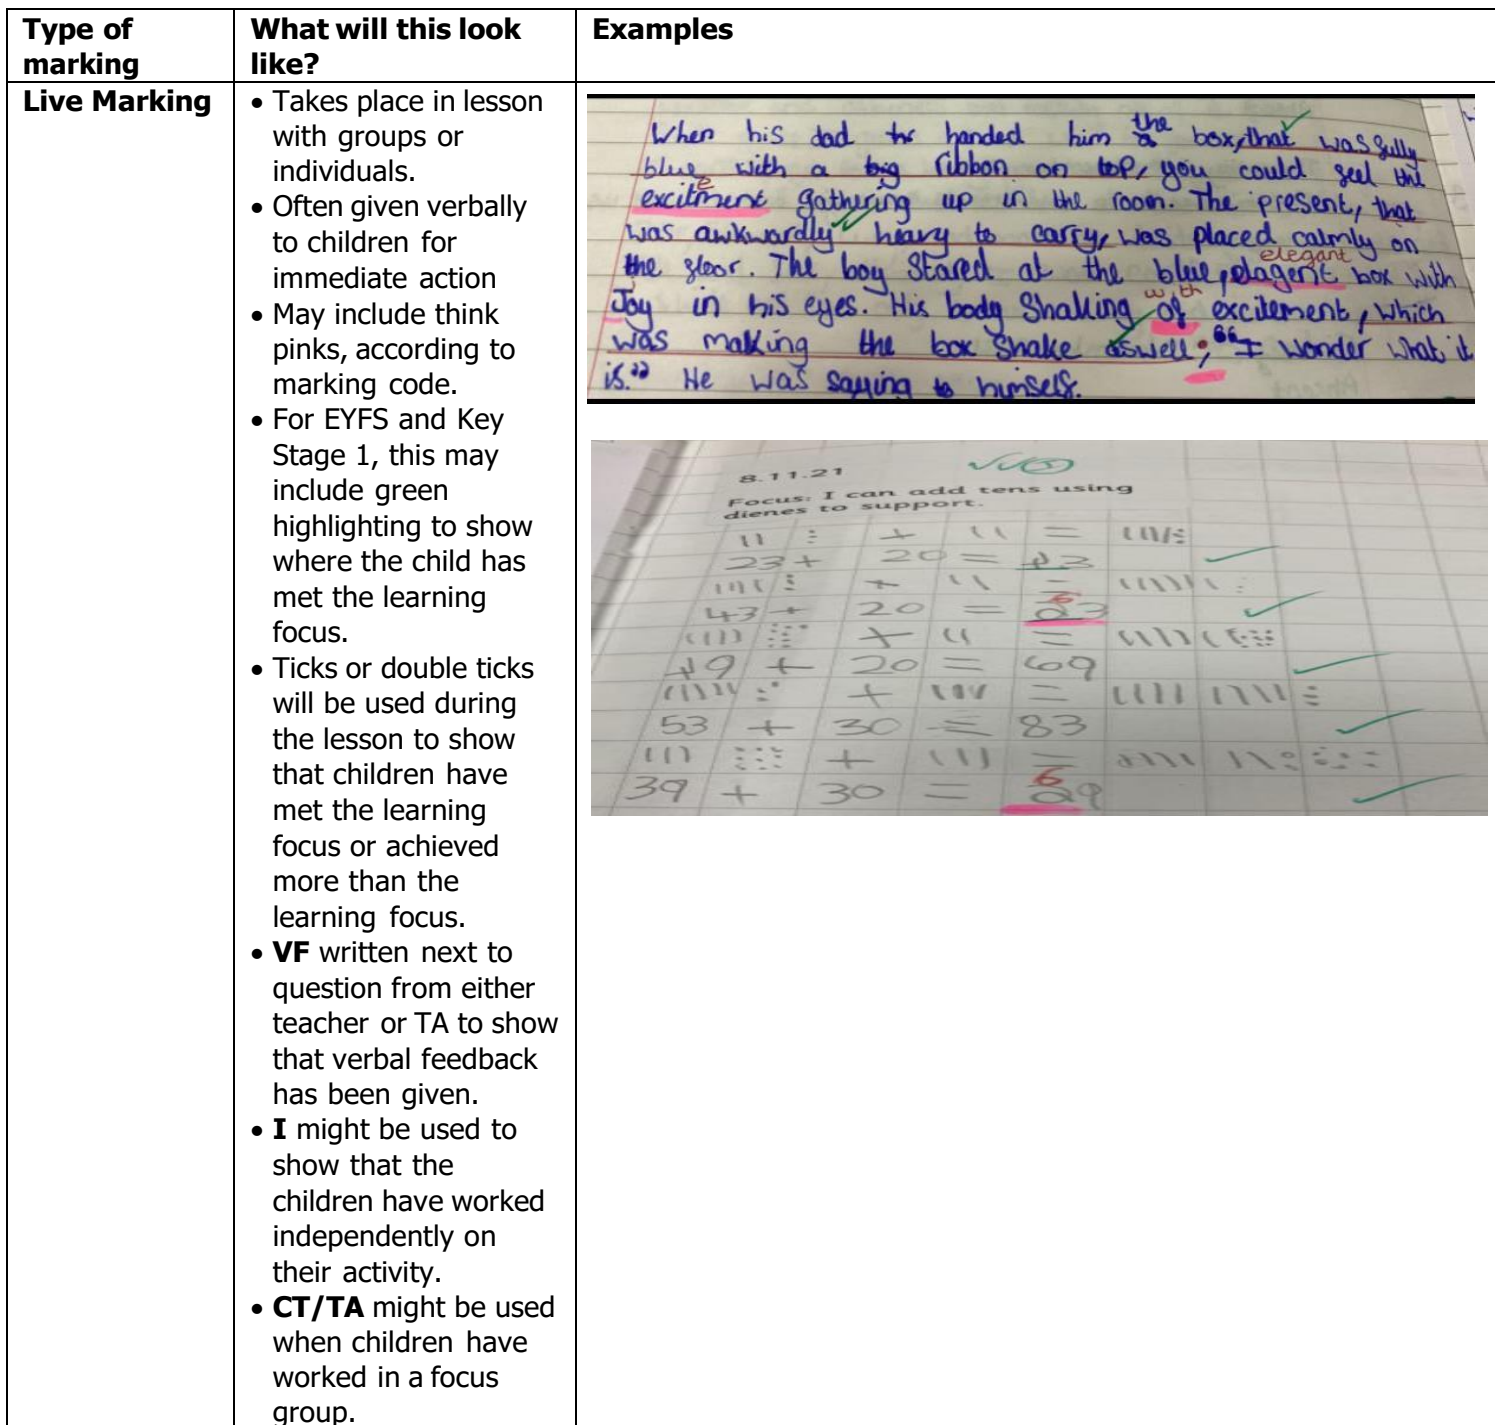 Type of marking
What will this look like?
Examples
Live Marking
• Takes place in lesson
with groups or
individuals.
• Often given verbally
to children for
immediate action
• May include think
pinks, according to
marking code.
• For EYFS and Key
Stage 1, this may
include green
highlighting to show
where the child has
met the learning
focus.
• Ticks or double ticks
will be used during
the lesson to show
that children have
met the learning
focus or achieved
more than the
learning focus.
• VF written next to
question from either
teacher or TA to show
that verbal feedback
has been given.
• I might be used to
show that the
children have worked
independently on
their activity.
• CT/TA might be used
when children have
worked in a focus
group.
When his dad handed him the box, that was fully
blue with a big ribbon on top, you could feel the
excitment gathering up in the room. The present, that
was awkwardly heavy to carry, was placed calmly on
elegant
the floor. The boy Stared at the blue, elagent box with
with
Joy in his eyes. His body Shaking of excitement, which
was making the box shake aswell; "I wonder what it
is." He was saying to himself.
8.11.21
Focus: I can add tens using
dienes to support.
23 + 20 = 43
6
43 + 20 = 23
49 + 20 = 69
53 + 30 = 83
6
39 + 30 = 29